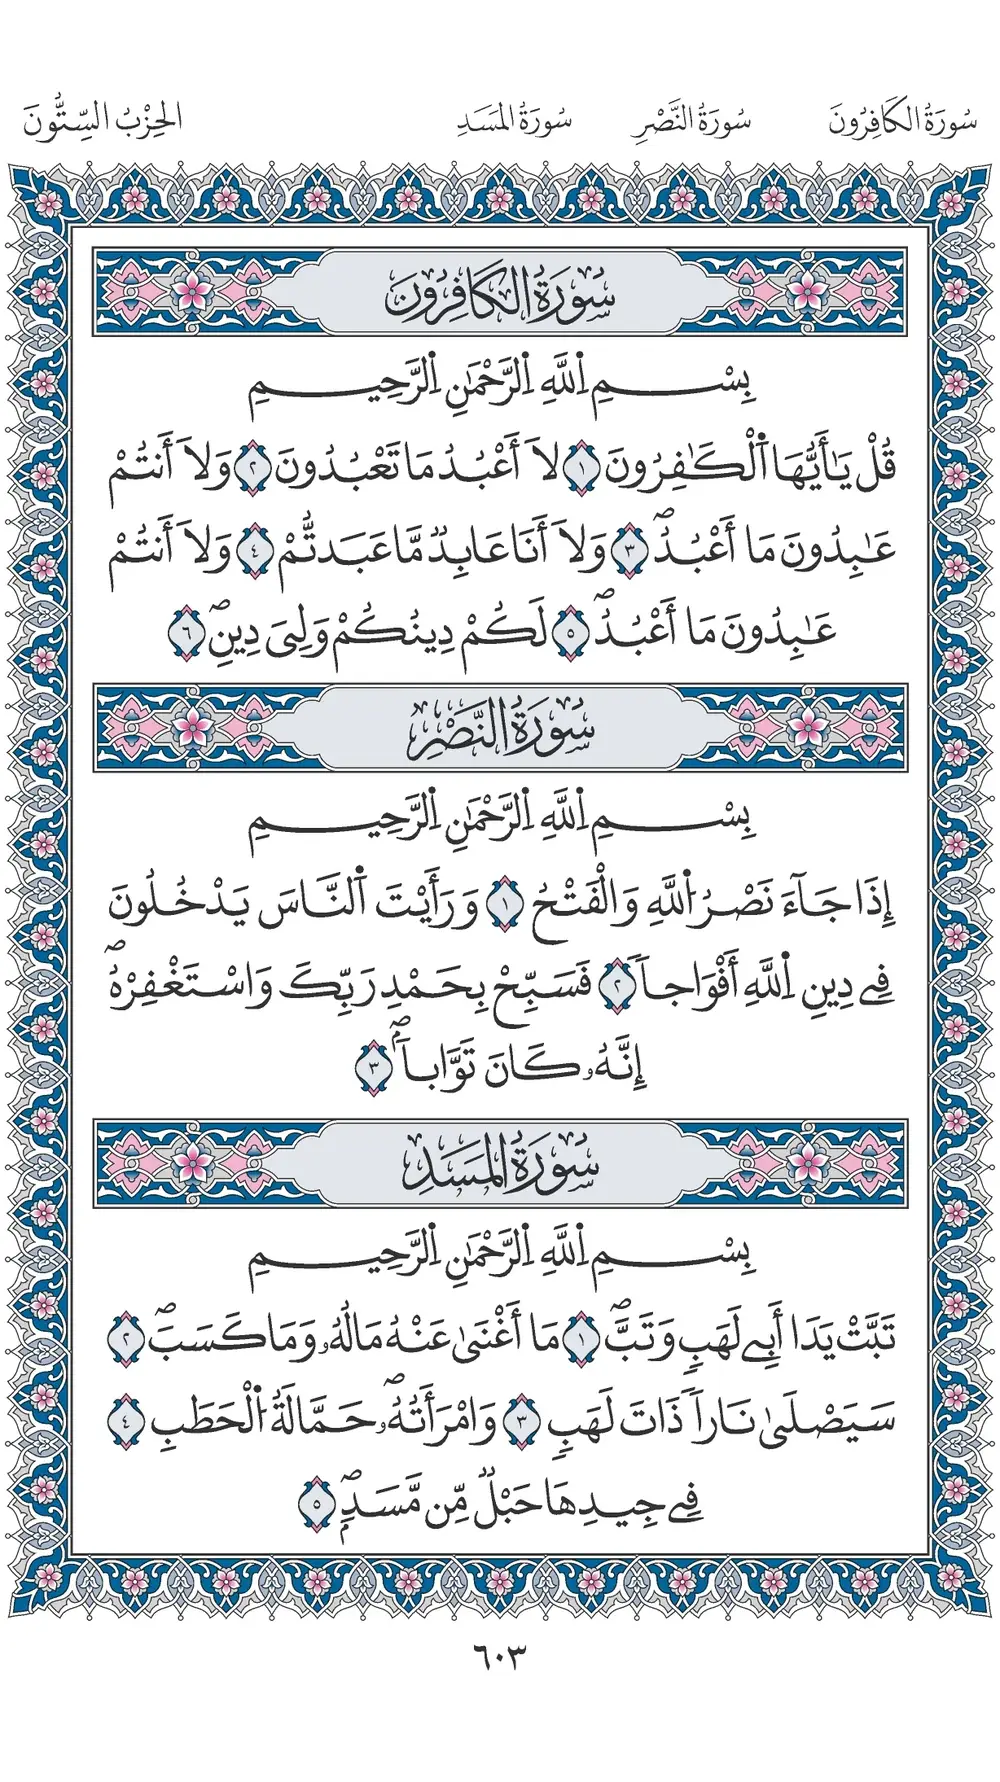 سُورَةُ الكَافِرُونَ سُورَةُ النَّصْرِ سُورَةُ المَسَدِ الحِزْبُ السِّتُّونَ
سُورَةُ الكَافِرُونَ
بِسْمِ اِ۬للَّهِ اِ۬لرَّحْمَٰنِ اِ۬لرَّحِيمِ
قُلْ يَٰأَيُّهَا اَ۬لْكَٰفِرُونَ ١ لَا أَعْبُدُ مَا تَعْبُدُونَ ٢ وَلَا أَنتُمْ
عَٰبِدُونَ مَا أَعْبُدُۖ ٣ وَلَا أَنَا عَابِدٞ مَّا عَبَدتُّمْ ٤ وَلَا أَنتُمْ
عَٰبِدُونَ مَا أَعْبُدُۖ ٥ لَكُمْ دِينُكُمْ وَلِيَ دِينِۖ ٦
سُورَةُ النَّصْرِ
بِسْمِ اِ۬للَّهِ اِ۬لرَّحْمَٰنِ اِ۬لرَّحِيمِ
إِذَا جَآءَ نَصْرُ اُ۬للَّهِ وَالْفَتْحُ ١ وَرَأَيْتَ اَ۬لنَّاسَ يَدْخُلُونَ
فِے دِينِ اِ۬للَّهِ أَفْوَاجاٗ ٢ فَسَبِّحْ بِحَمْدِ رَبِّكَ وَاسْتَغْفِرْهُۖ
إِنَّهُۥ كَانَ تَوَّاباَۢۖ ٣
سُورَةُ المَسَدِ
بِسْمِ اِ۬للَّهِ اِ۬لرَّحْمَٰنِ اِ۬لرَّحِيمِ
تَبَّتْ يَدَا أَبِے لَهَبٖ وَتَبَّۖ ١ مَا أَغْنَىٰ عَنْهُ مَالُهُۥ وَمَا كَسَبَۖ ٢
سَيَصْلَىٰ نَاراٗ ذَاتَ لَهَبٖ ٣ وَامْرَأَتُهُۥۖ حَمَّالَةُ اُ۬لْحَطَبِ ٤
فِے جِيدِهَا حَبْلٞ مِّن مَّسَدِۢۖ ٥
٦٠٣